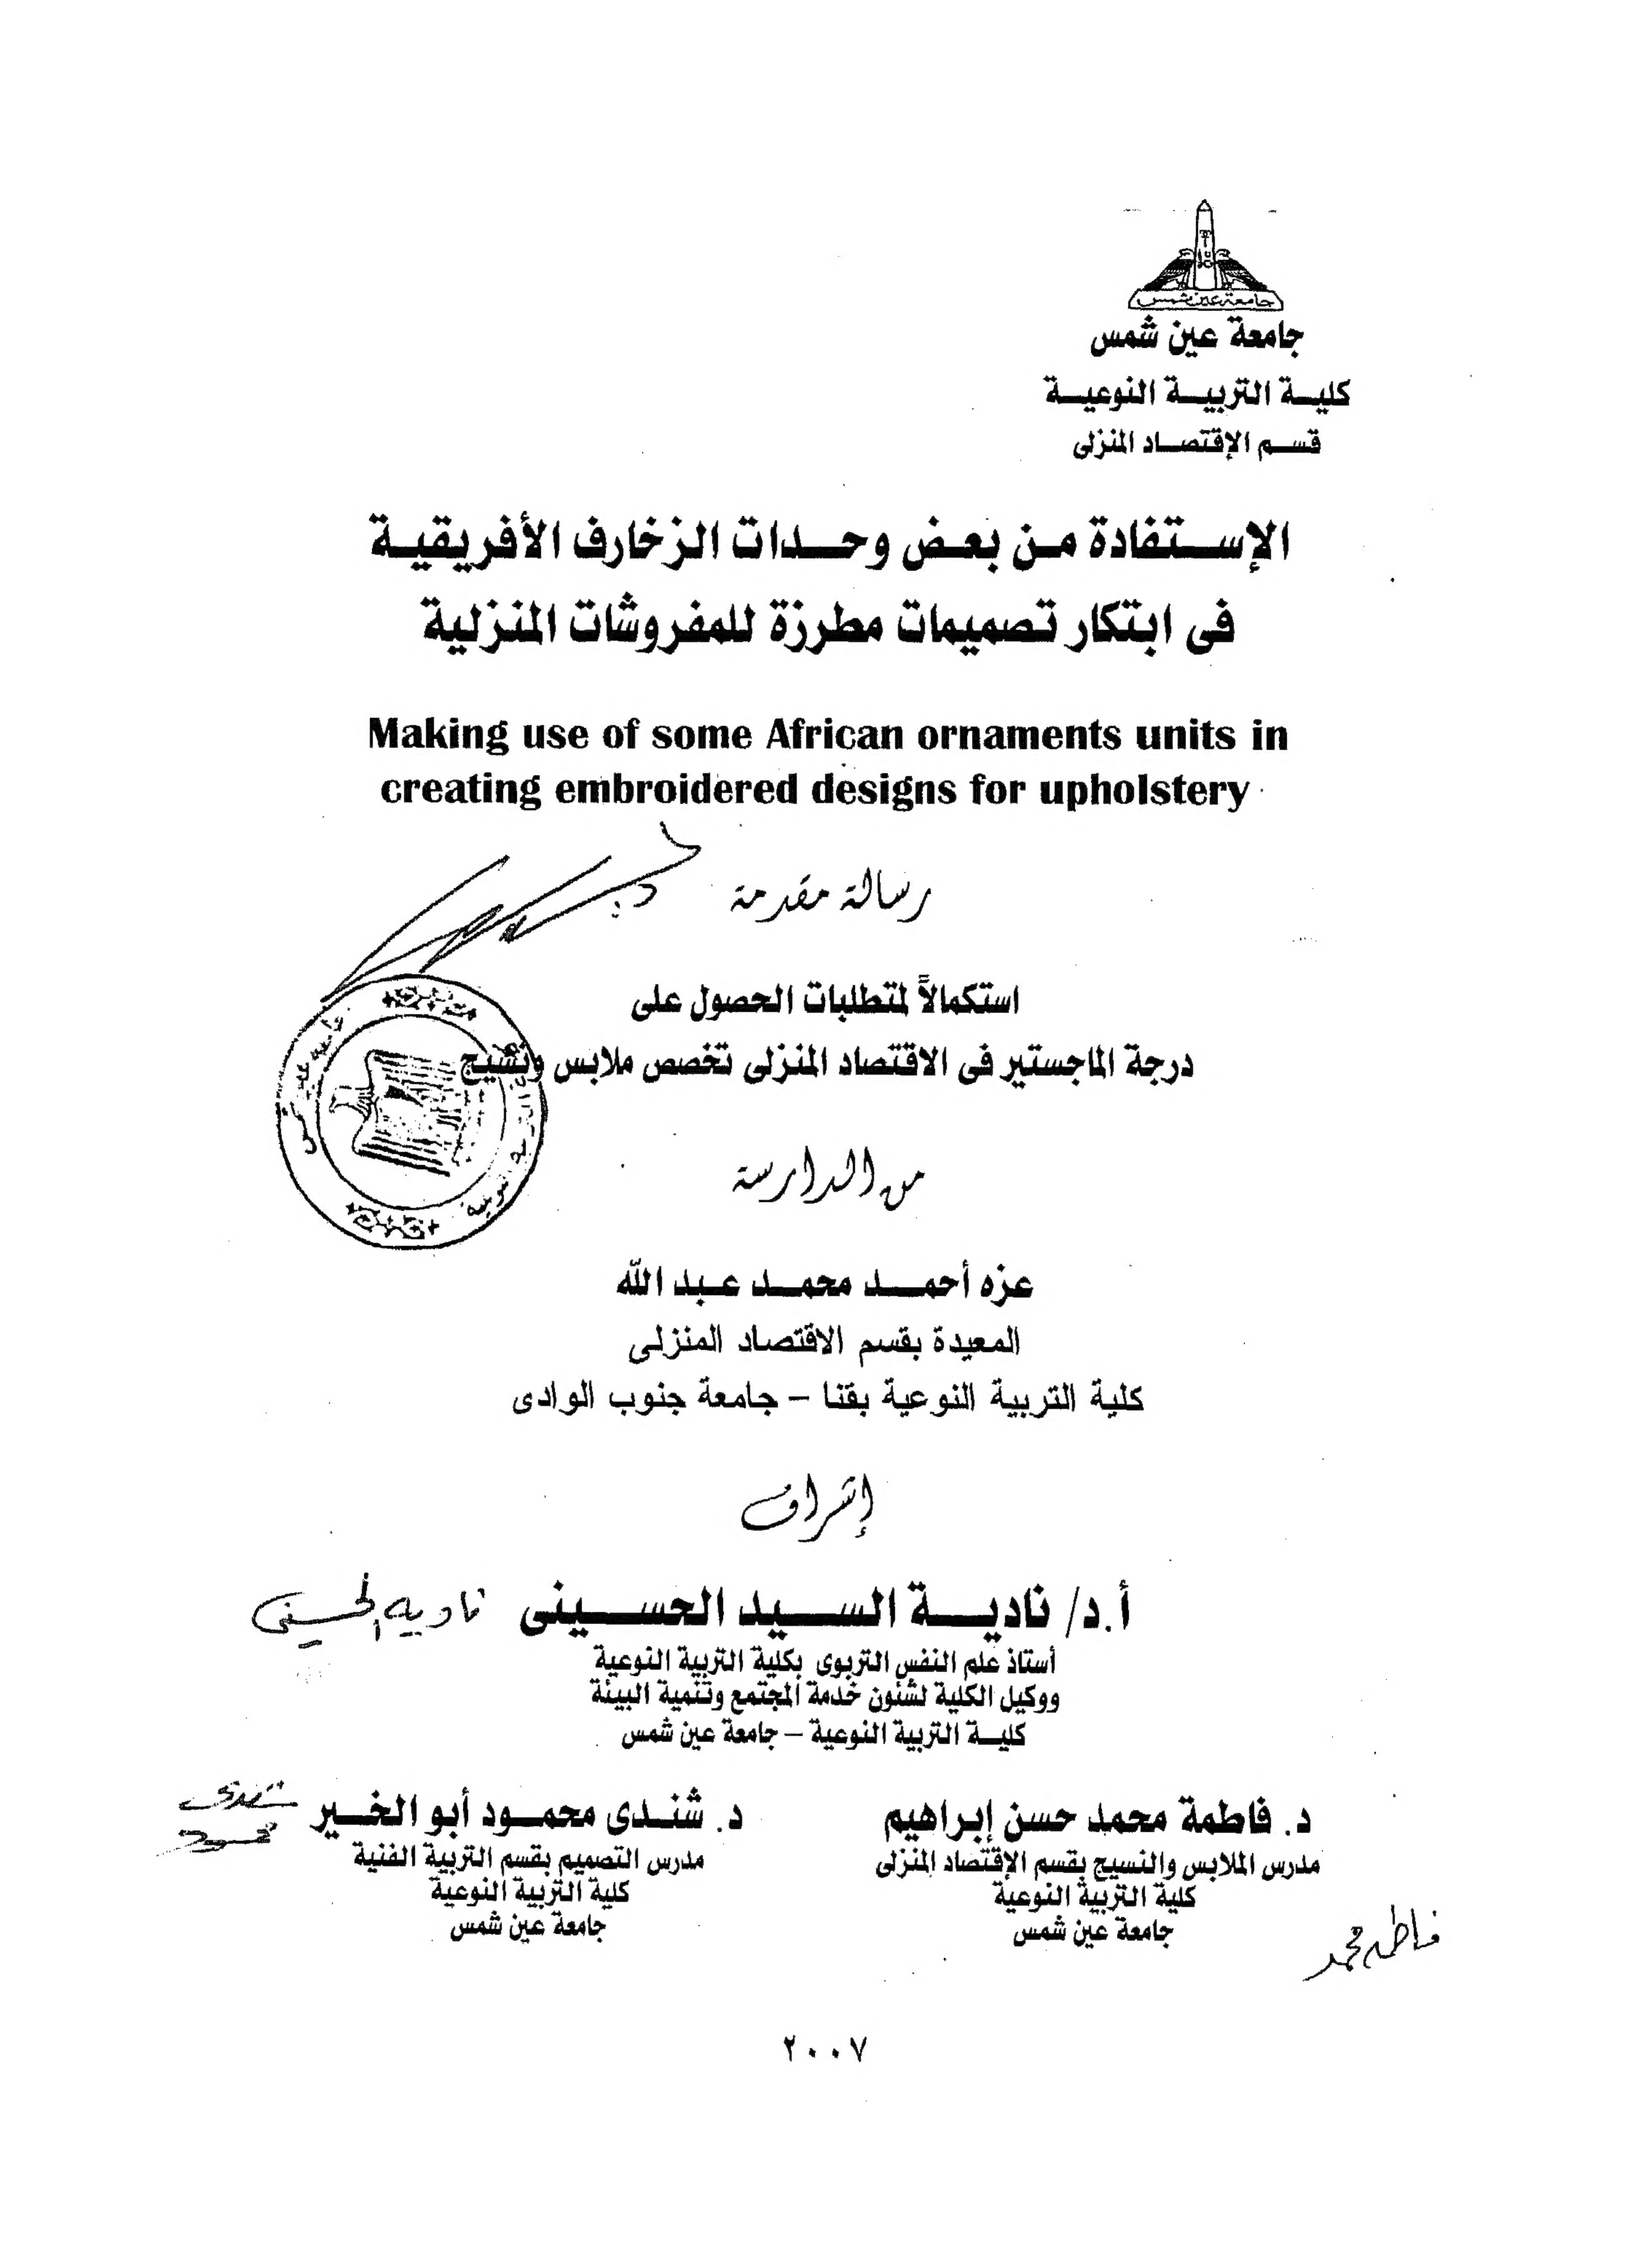 جامعة عين شمس
جامعة عين شمس
كليـة التربيـة النوعيـة
قسـم الإقتصـاد المنزلى
الإستفادة من بعض وحدات الزخارف الأفريقية
فى ابتكار تصميمات مطرزة للمفروشات المنزلية
Making use of some African ornaments units in
creating embroidered designs for upholstery
رسالة مقدمة
استكمالاً لمتطلبات الحصول على
درجة الماجستير فى الاقتصاد المنزلى تخصص ملابس ونسيج
من الدارسة
عزه أحمد محمد عبد الله
المعيدة بقسم الاقتصاد المنزلى
كلية التربية النوعية بقنا – جامعة جنوب الوادى
إشراف
أ.د/ نادية السيد الحسينى نادية الحسينى
أستاذ علم النفس التربوى بكلية التربية النوعية
ووكيل الكلية لشئون خدمة المجتمع وتنمية البيئة
كليـة التربية النوعية – جامعة عين شمس
د. فاطمة محمد حسن إبراهيم
مدرس الملابس والنسيج بقسم الإقتصاد المنزلى
كلية التربية النوعية
جامعة عين شمس
فاطمه محمد
د. شندى محمود أبو الخير
شندى محمود
مدرس التصميم بقسم التربية الفنية
كلية التربية النوعية
جامعة عين شمس
٢٠٠٧